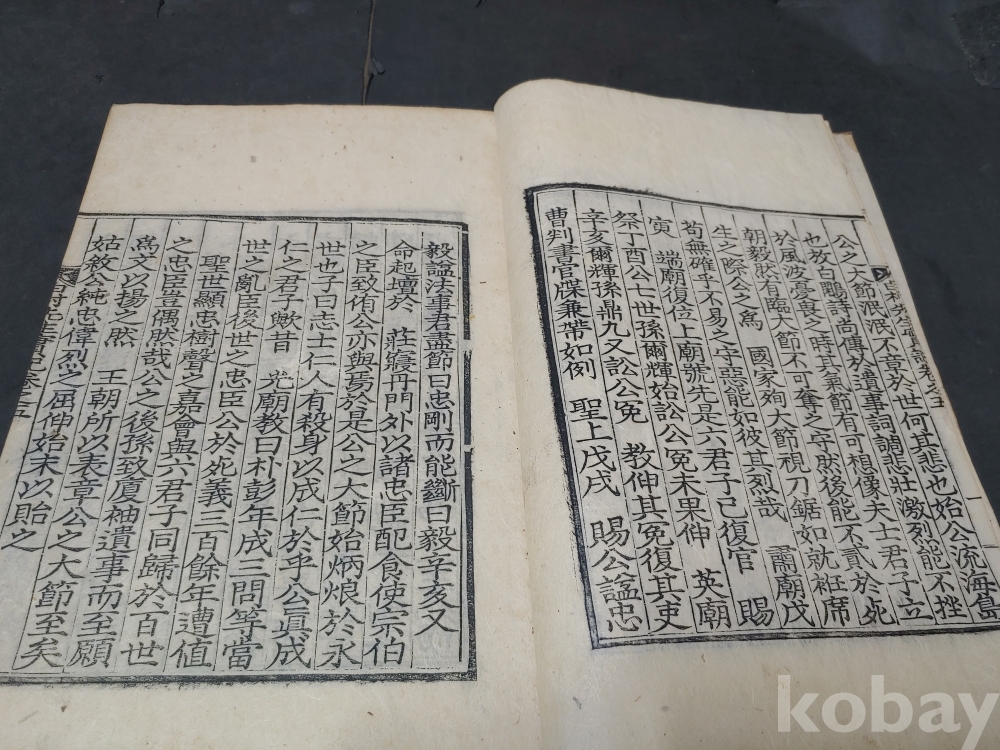 公之大節泯泯不章於世何其悲也始公流海島
也放白鷴詩尚傳於遺事詞調悲壯激烈能不挫
於風波憂喪之時其氣節有可想像夫士君子立
朝毅然有臨大節不可奪之守然後能不貳於死
生之際公之爲 國家殉大節視刀鋸如就袵席
苟無確乎不易之守惡能如彼其烈哉 肅廟戊
寅 端廟復位上廟號先是六君子已復官 賜
祭丁酉公七世孫爾輝始訟公冤未果伸 英廟
辛亥爾輝孫鼎九又訟公冤 教伸其冤復其吏
曹判書官牒兼帶如例 聖上戊戌 賜公諡忠
毅諡法事君盡節曰忠剛而能斷曰毅辛亥又
命起壇於 莊寢丹門外以諸忠臣配食使宗伯
之臣致侑公亦與焉於是公之大節始炳烺於永
世也子曰志士仁人有殺身以成仁於乎公眞成
仁之君子歟昔 光廟教曰朴彭年成三問等當
世之亂臣後世之忠臣公於死義三百餘年遭値
聖世顯忠樹聲之嘉會與六君子同歸於百世
之忠臣豈偶然哉公之後孫致廈袖遺事而至願
爲文以揚之然 王朝所以表章公之大節至矣
姑敘公純忠偉烈之屈伸始末以貽之
kobay